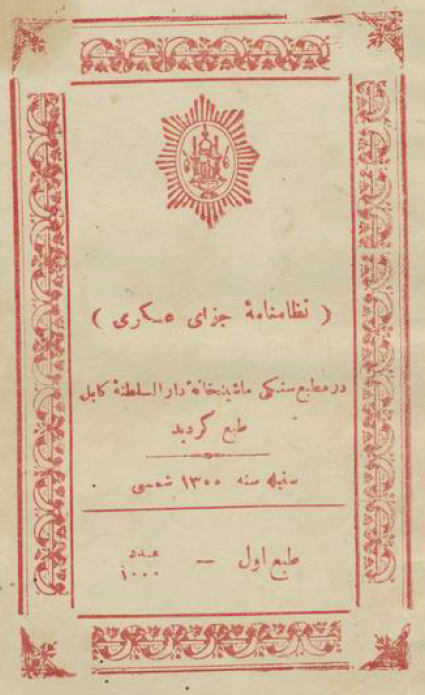 ( نظامنامهٔ جزای عسکری )
در مطبع سنگی ماشینخانهٔ دار السلطنهٔ کابل
طبع گردید
سنبله سنه ۱۳۰۰ شمسی
طبع اول — عدد ۱۰۰۰